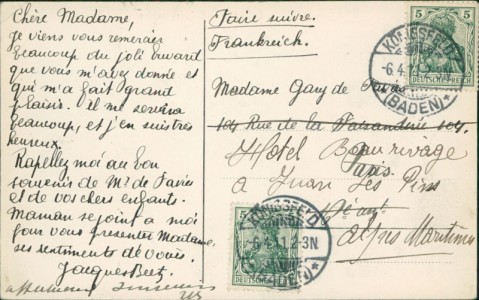 Chère Madame,
je viens vous remercier
beaucoup du joli buvard
que vous m'avez donné et
qui m'a fait grand
plaisir. Il me servira
beaucoup, et j'en suis très
heureux.
Rapellez moi au bon
souvenir de Mr de
et de vos chers enfants.
Maman se joint à moi
pour vous présenter Madame
ses sentiments de
Jacques
Faire suivre.
Frankreich.
Madame Gany de
104 Rue de la Faisanderie 104.
Hôtel Beau rivage
Paris.
à Juan les Pins
Alpes Maritimes
5 5
DEUTSCHES REICH
KÖNIGSFELD
6.4.
(BADEN)
KÖNIGSFELD
6.4.11.2-3N.
(BADEN)